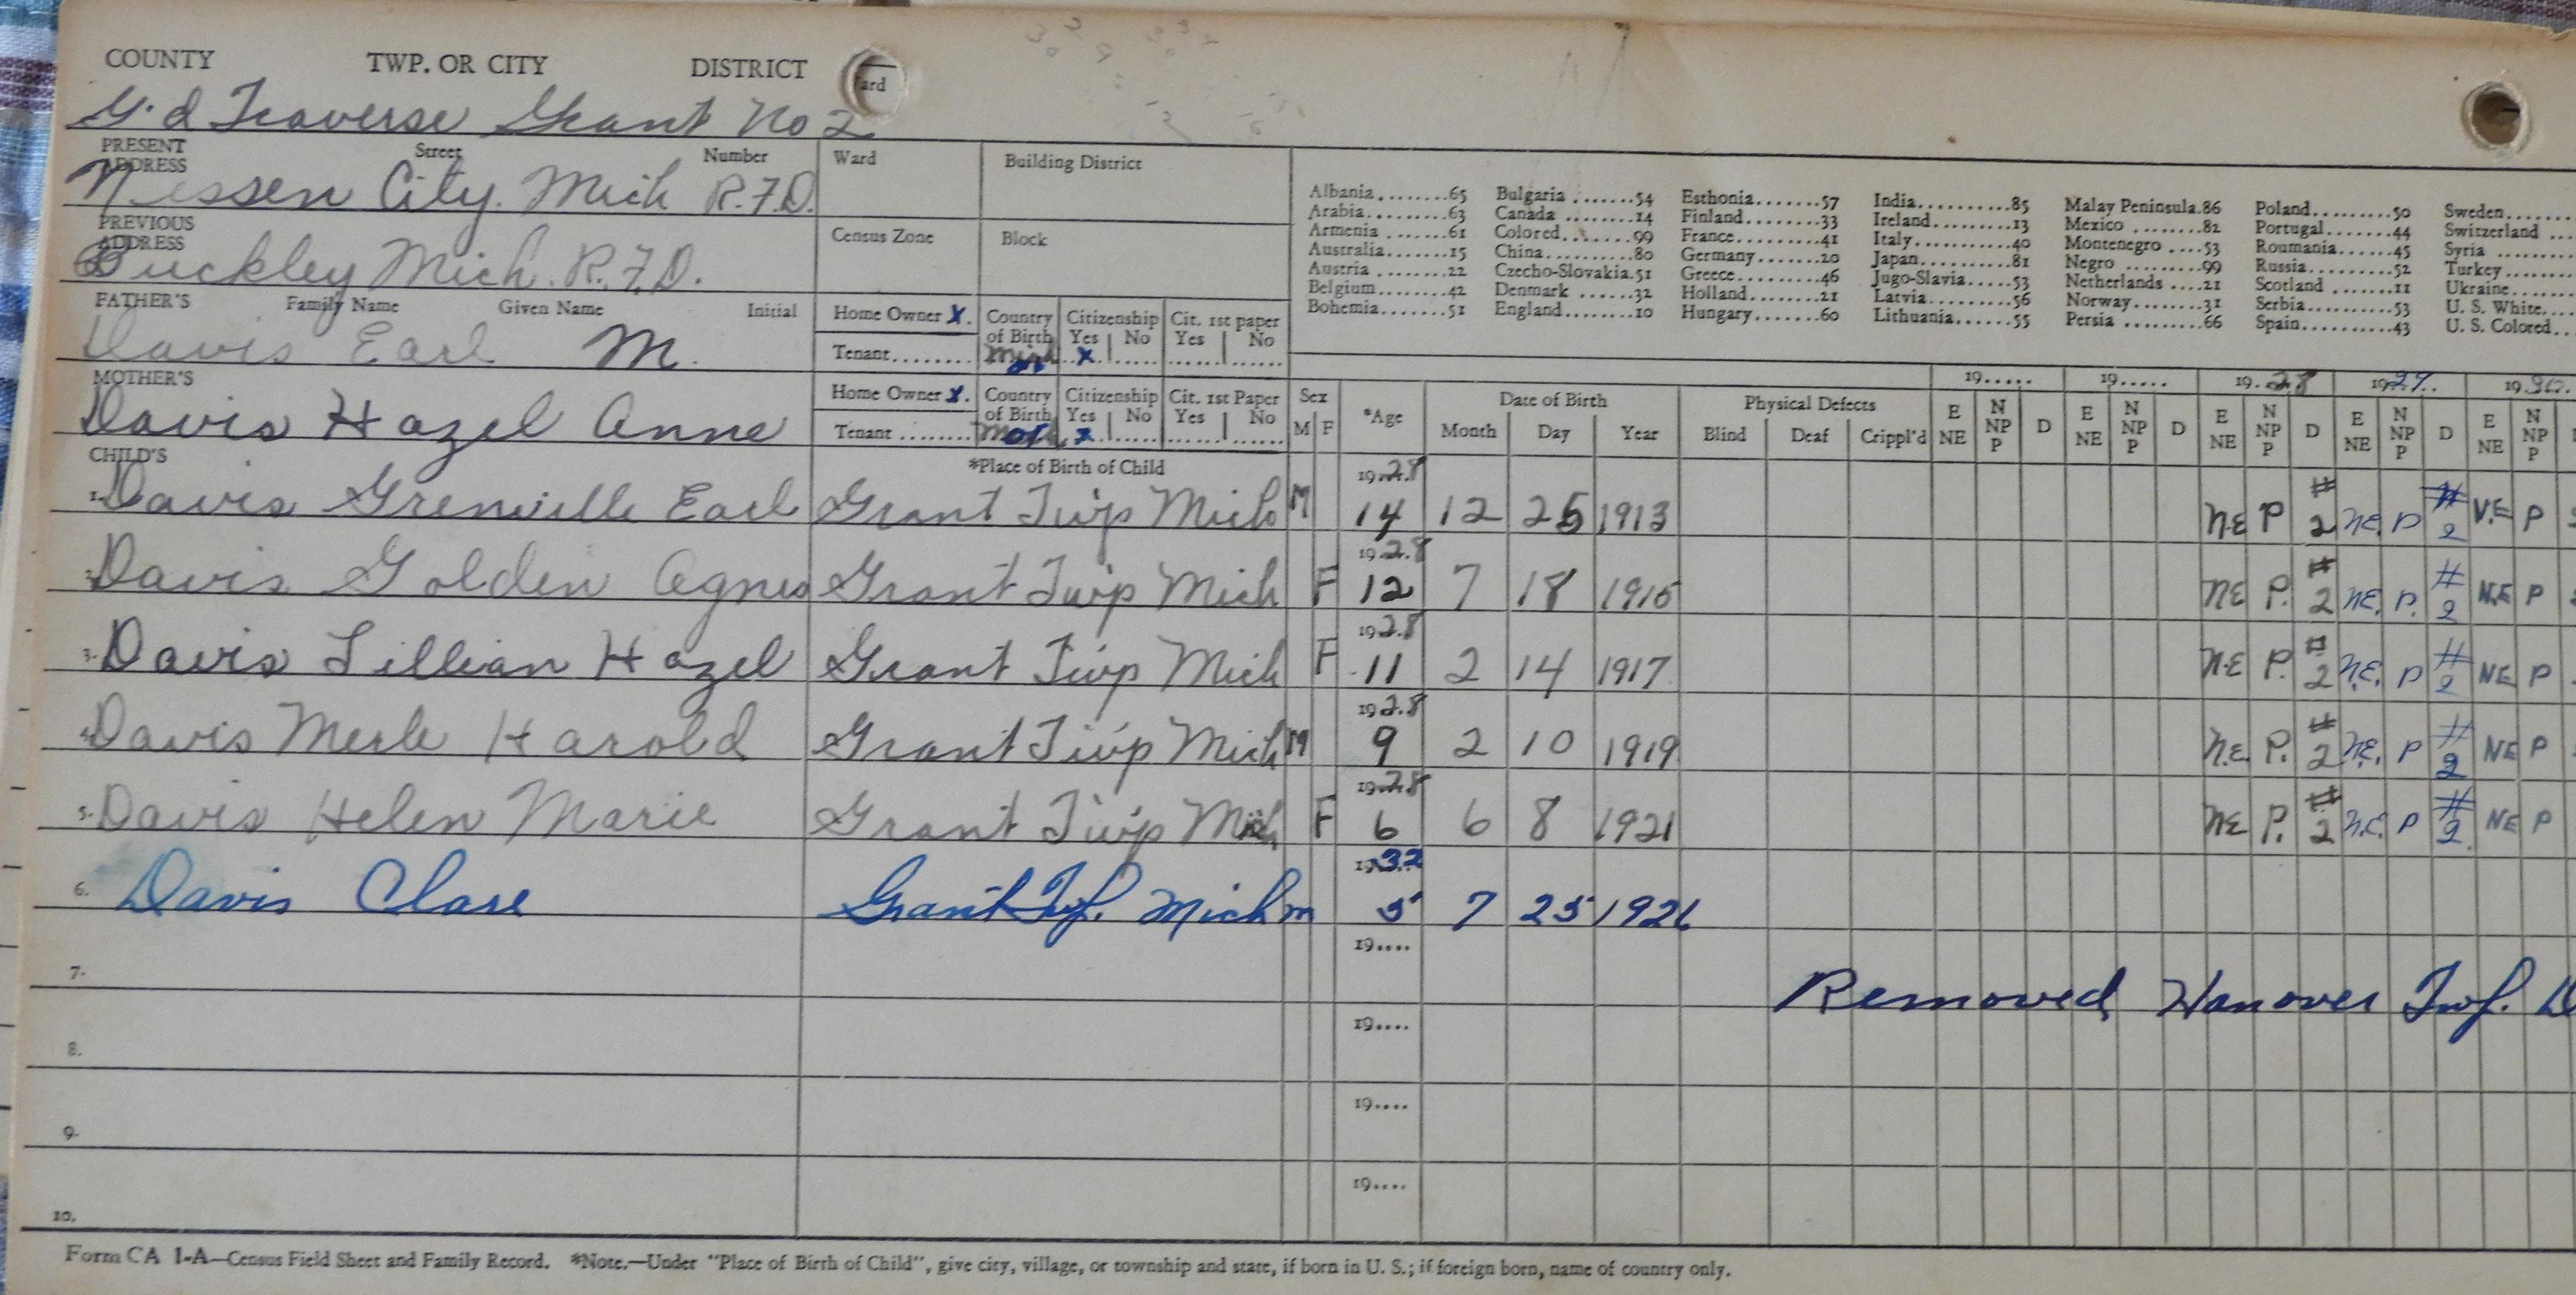 COUNTY TWP. OR CITY DISTRICT ard
G.d Traverse Grant No 2
PRESENT ADDRESS Street Number Ward Building District
Nessen City. Mich R.F.D.
PREVIOUS ADDRESS Census Zone Block
Buckley Mich. R.F.D.
Albania........65 Bulgaria .......54 Esthonia.......57 India..........85 Malay Peninsula.86 Poland.........50 Sweden.......
Arabia.........63 Canada ........14 Finland........33 Ireland........13 Mexico ........82 Portugal.......44 Switzerland ....
Armenia .......61 Colored........99 France.........41 Italy..........40 Montenegro ....53 Roumania.......45 Syria .......
Australia......15 China..........80 Germany .......20 Japan..........81 Negro .........99 Russia.........52 Turkey.......
Austria .......22 Czecho-Slovakia.51 Greece.........46 Jugo-Slavia....53 Netherlands ...21 Scotland ......11 Ukraine.......
Belgium........42 Denmark .......32 Holland........21 Latvia.........56 Norway.........31 Serbia.........53 U. S. White....
Bohemia........51 England........10 Hungary........60 Lithuania......55 Persia ........66 Spain..........43 U. S. Colored..
FATHER'S Family Name Given Name Initial Home Owner X. Country of Birth Citizenship Yes No Cit. 1st paper Yes No
Davis Earl M. Tenant........ Mich x
MOTHER'S Home Owner X. Country of Birth Citizenship Yes No Cit. 1st Paper Yes No
Davis Hazel Anne Tenant ........ x
Sex M F *Age Date of Birth Month Day Year Physical Defects Blind Deaf Crippl'd
19..... 19..... 19.28 19.29. 19.30.
E NE N NP P D E NE N NP P D E NE N NP P D E NE N NP P D E NE N NP P
CHILD'S *Place of Birth of Child
1. Davis Grenville Earl Grant Twp Mich M 1928 14 12 25 1913 NE P #2 NE. P #2 V.E P
2. Davis Golden Agnes Grant Twp Mich F 1928 12 7 18 1915 NE P. #2 NE. P. #2 N.E P
3. Davis Lillian Hazel Grant Twp Mich F 1928 11 2 14 1917 N.E P. #2 N.E. P #2 NE P
4. Davis Merle Harold Grant Twp Mich M 1928 9 2 10 1919 N.E. P. #2 N.E. P #2 NE P
5. Davis Helen Marie Grant Twp Mich F 1928 6 6 8 1921 NE P. #2 N.E. P #2 NE P
6. Davis Clare Grant Twp. Mich m 1932 5 7 25 1926
7. 19....
Removed Hanover Twp. D
8. 19....
9. 19....
10. 19....
Form CA 1-A—Census Field Sheet and Family Record. *Note.—Under "Place of Birth of Child", give city, village, or township and state, if born in U. S.; if foreign born, name of country only.